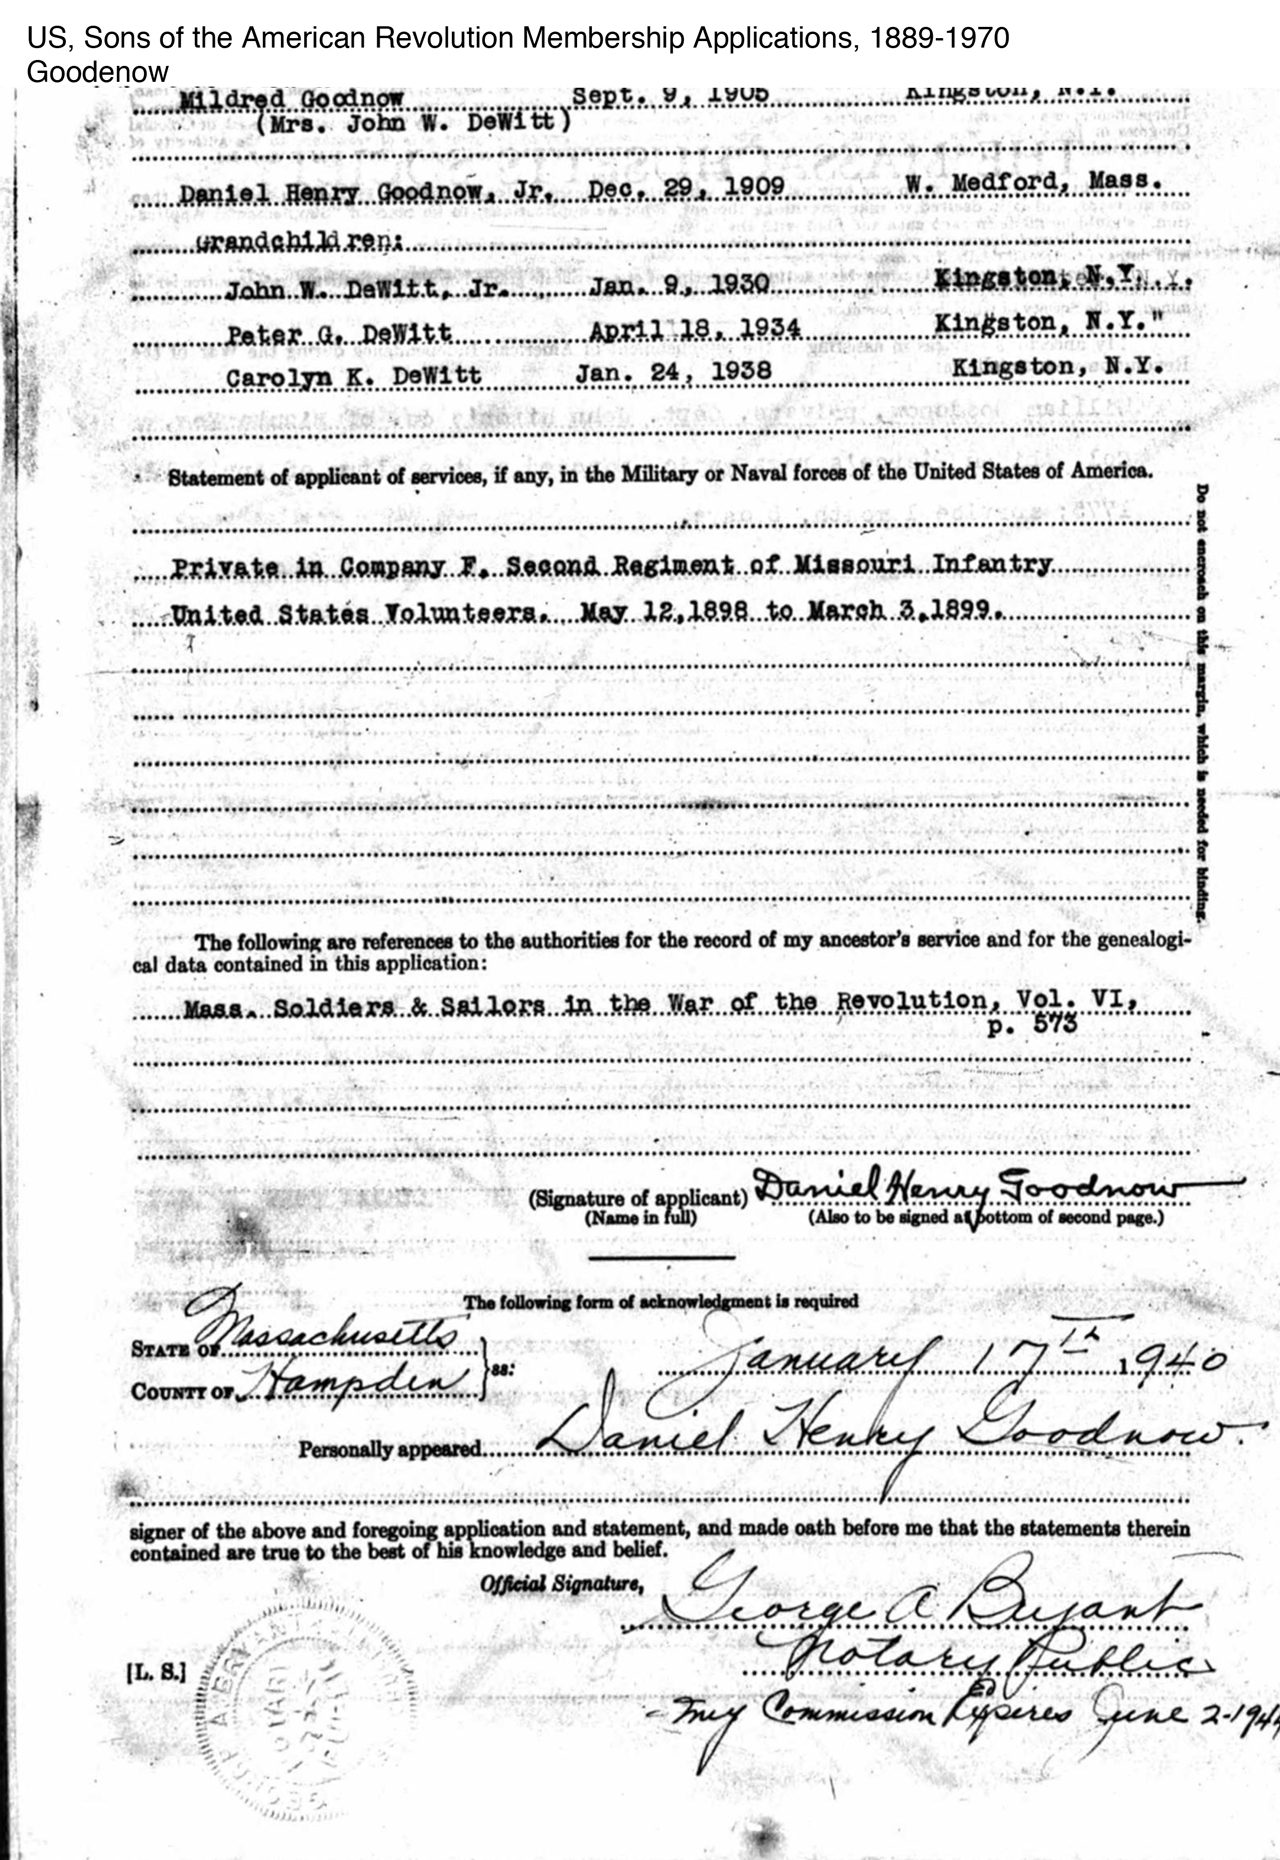 US, Sons of the American Revolution Membership Applications, 1889-1970
Goodenow
Mildred Goodnow Sept. 9, 1905 Kingston, N.Y.
(Mrs. John W. DeWitt)
Daniel Henry Goodnow, Jr. Dec. 29, 1909 W. Medford, Mass.
Grandchildren:
John W. DeWitt, Jr. Jan. 9, 1930 Kingston, N.Y.
Peter G. DeWitt April 18, 1934 Kingston, N.Y."
Carolyn K. DeWitt Jan. 24, 1938 Kingston, N.Y.
Statement of applicant of services, if any, in the Military or Naval forces of the United States of America.
Private in Company F. Second Regiment of Missouri Infantry
United States Volunteers. May 12,1898 to March 3,1899.
Do not encroach on this margin, which is needed for binding.
The following are references to the authorities for the record of my ancestor's service and for the genealogi-
cal data contained in this application:
Mass. Soldiers & Sailors in the War of the Revolution, Vol. VI,
p. 573
(Signature of applicant) Daniel Henry Goodnow
(Name in full) (Also to be signed at bottom of second page.)
The following form of acknowledgment is required
STATE OF Massachusetts
COUNTY OF Hampden } ss: January 17th 1940
Personally appeared Daniel Henry Goodnow.
signer of the above and foregoing application and statement, and made oath before me that the statements therein
contained are true to the best of his knowledge and belief.
Official Signature, George A Bryant
Notary Public
[L. S.]
My Commission Expires June 2-194